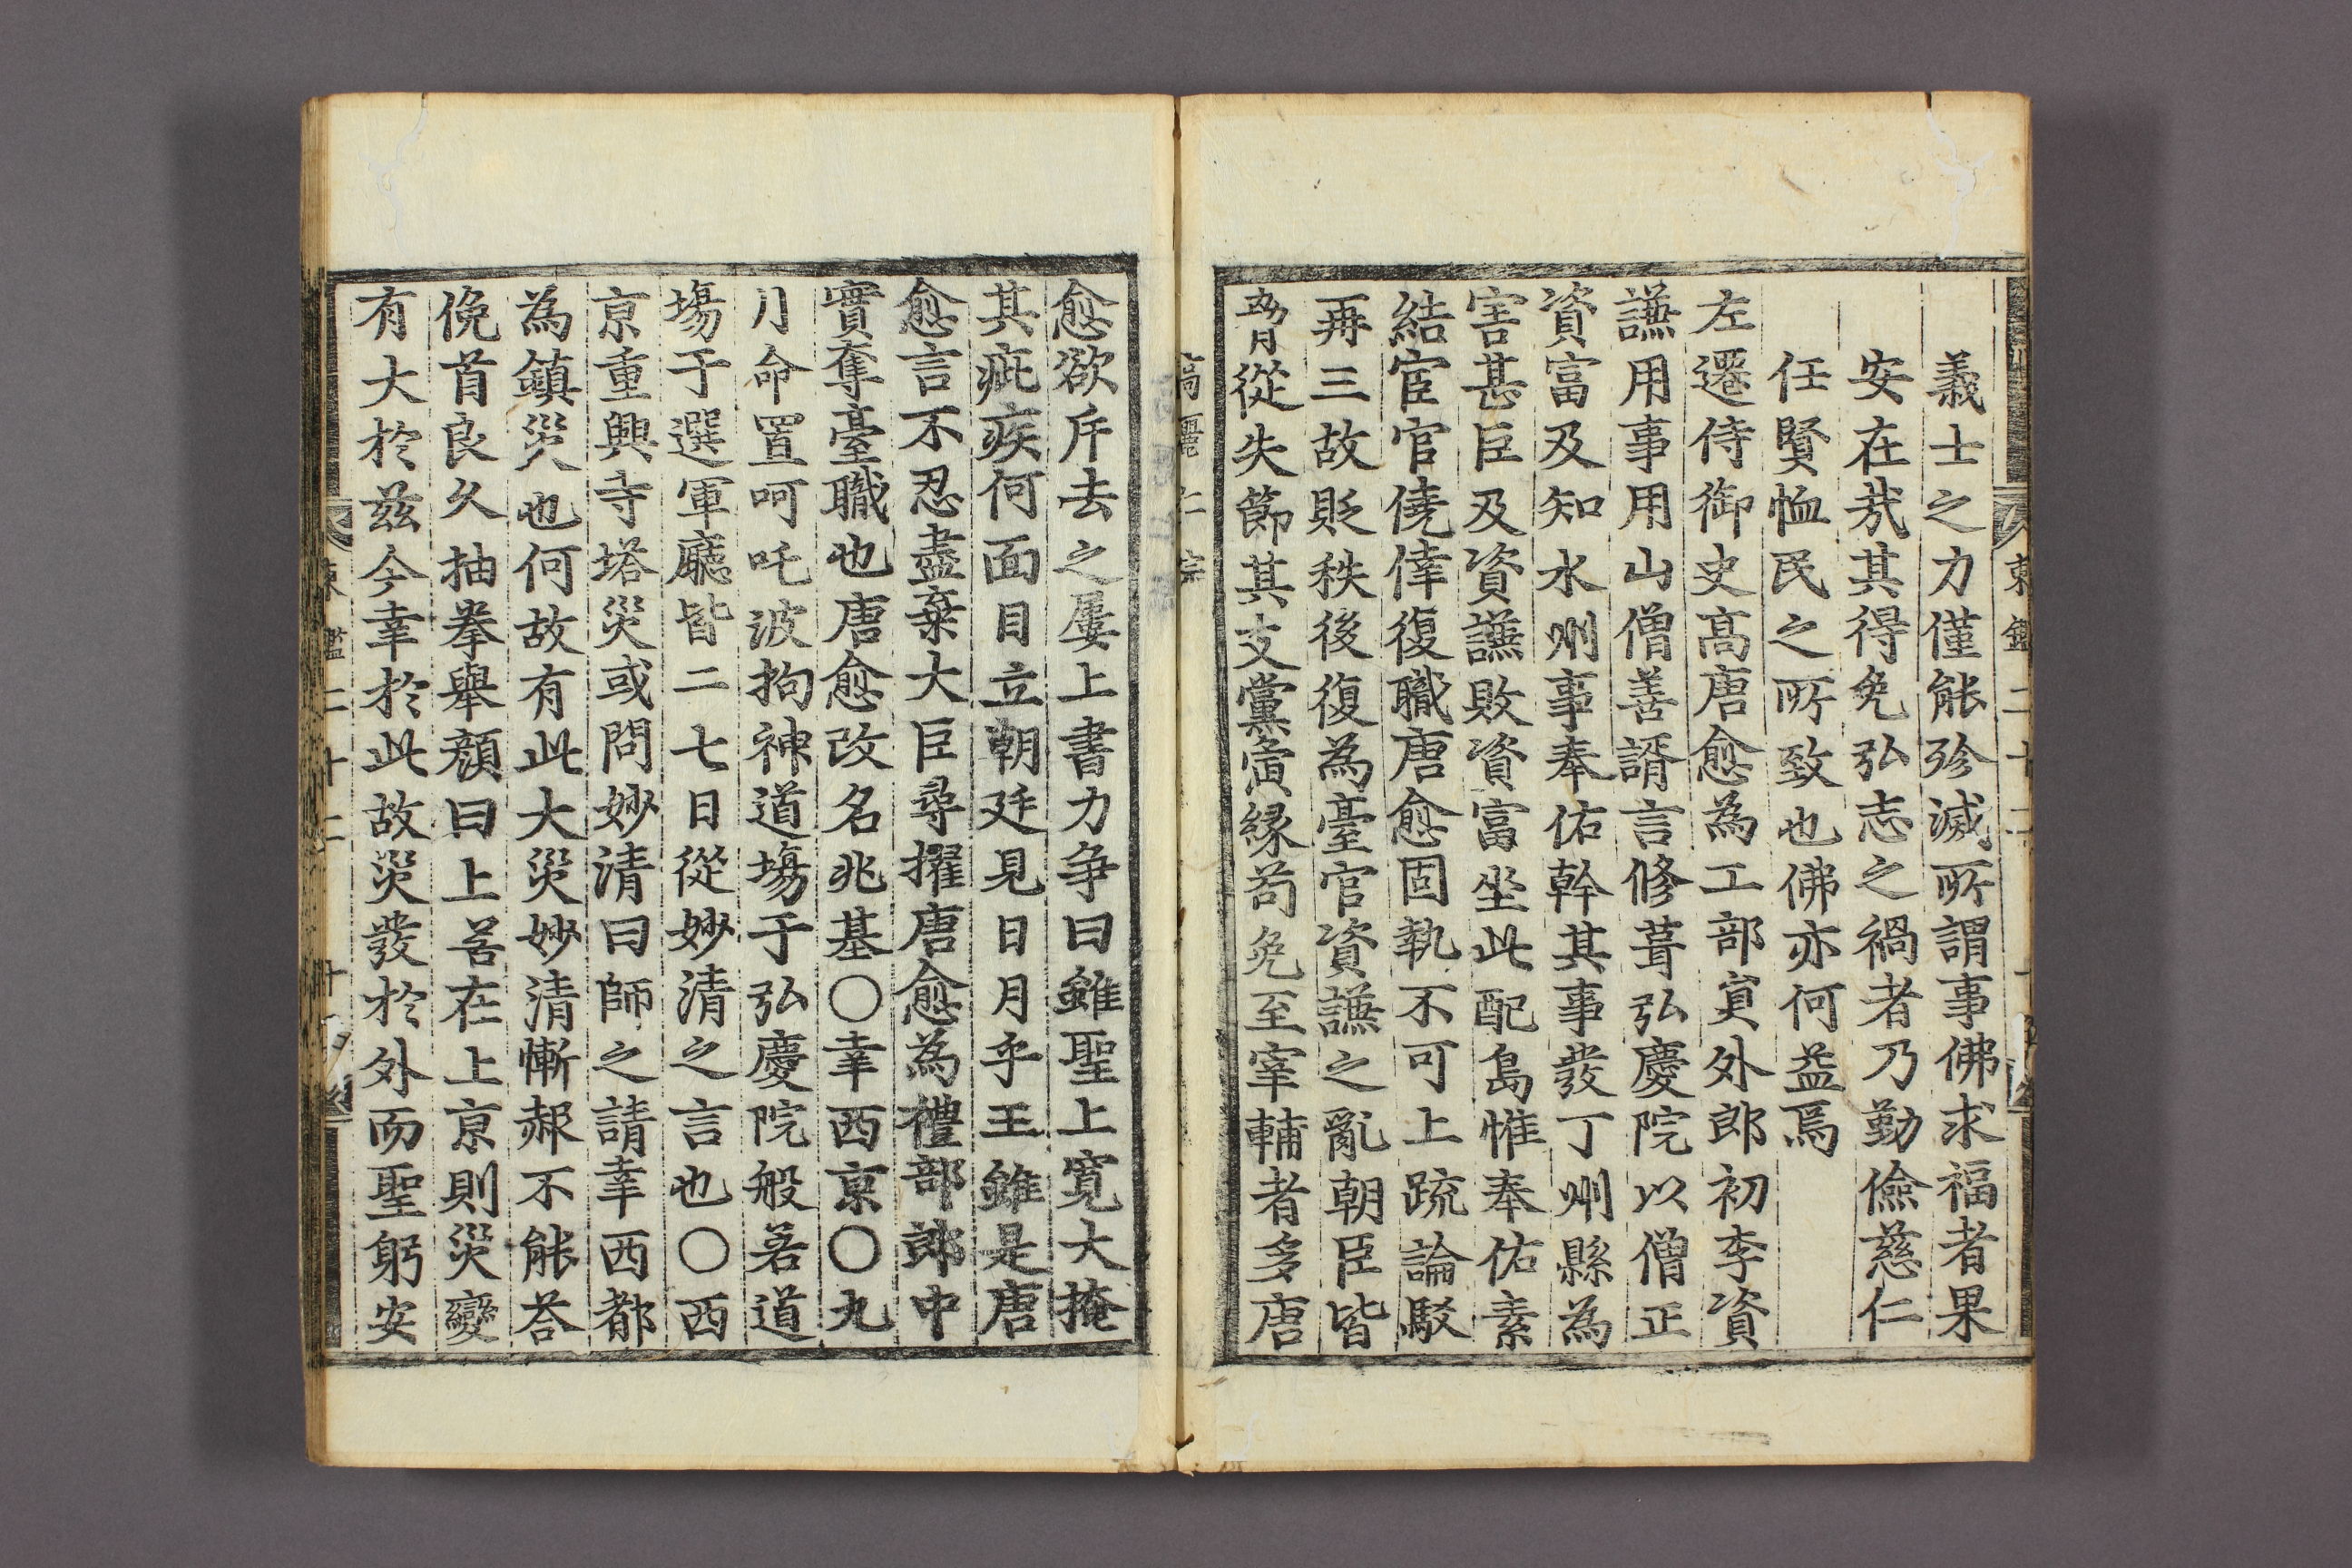 義士之力僅能殄滅所謂事佛求福者果
安在㦲其得免弘志之禍者乃勤儉慈仁
任賢恤民之所致也佛亦何益焉
左遷侍御史高唐愈為工部負外郎初李資
謙用事用山僧善諝言修葺弘慶院以僧正
資富及知水州事奉佑幹其事發丁州縣為
害甚巨及資謙敗資富坐此配島惟奉佑素
結宦官僥倖復職唐愈固執不可上疏論駁
再三故貶秩後復為臺官資謙之亂朝臣皆
從失節其支黨夤緣苟免至宰輔者多唐
愈欲斥去之屢上書力争曰雖聖上寛大掩
其疵疾何面目立朝廷見日月乎王雖是唐
愈言不忍盡棄大臣尋擢唐愈為禮部郎中
實奪臺職也唐愈改名兆基〇幸西京〇九
月命置呵吒波拘神道場于弘慶院般若道
場于選軍廳皆二七日從妙清之言也〇西
京重興寺塔災或問妙清曰師之請幸西都
為鎮災也何故有此大災妙清慚赧不能荅
俛首良久抽拳舉顔曰上若在上京則災變
有大於兹今幸於此故災發於外而聖躬安